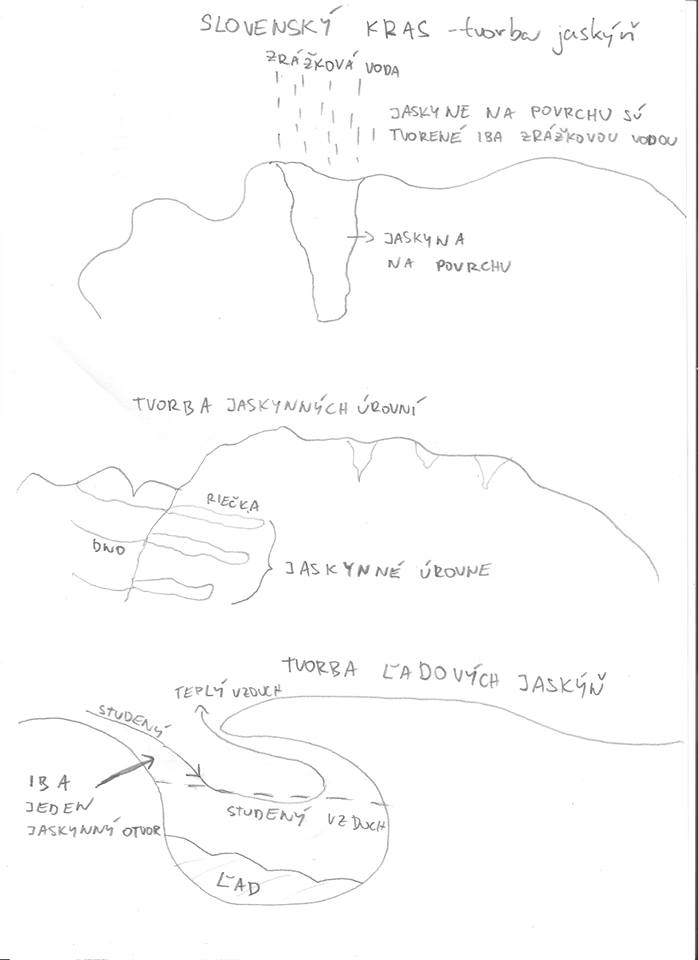 SLOVENSKÝ KRAS - tvorba jaskýň
ZRÁŽKOVÁ VODA
JASKYNE NA POVRCHU SÚ
TVORENÉ IBA ZRÁŽKOVOU VODOU
JASKYNA
NA POVRCHU
TVORBA JASKYNNÝCH ÚROVNÍ
RIEČKA
DNO
JASKYNNÉ ÚROVNE
TVORBA ĽADOVÝCH JASKÝŇ
TEPLÝ VZDUCH
STUDENÝ
IBA
JEDEN
JASKYNNÝ OTVOR
STUDENÝ VZDUCH
ĽAD